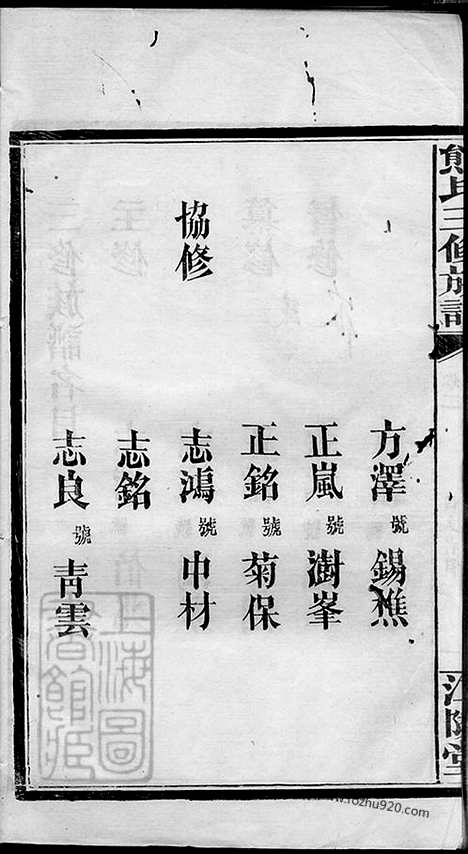 熊氏三修族譜
江陵堂
方澤 號 錫樵
正嵐 號 澍峯
正銘 號 菊保
協修
志鴻 號 中材
志銘
志良 號 青雲
上海圖書館藏
www.fozhu920.com